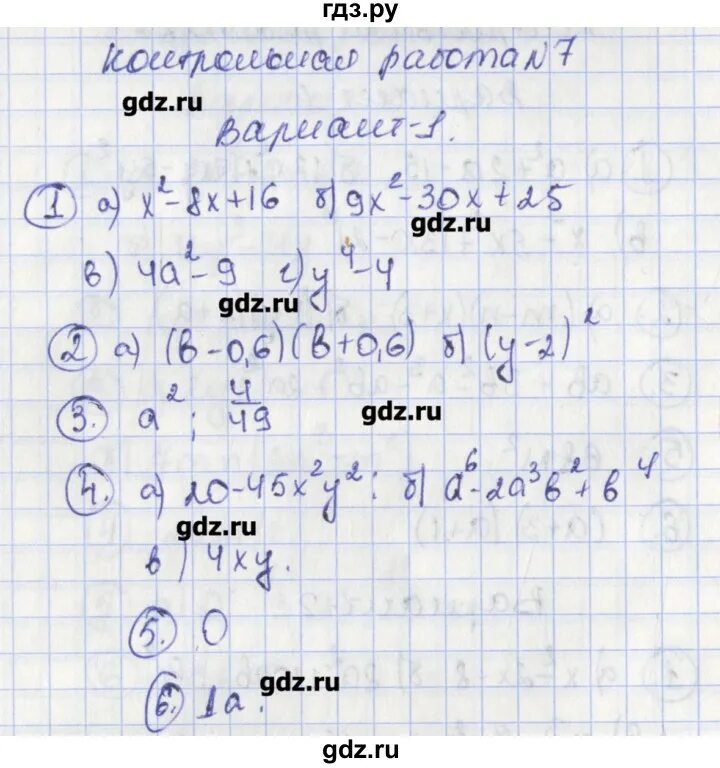 гдз.ру
Контрольная работа №7
gdz.ru
Вариант-1.
1 а) x²-8x+16 б) 9x²-30x+25
gdz.ru
в) 4a²-9 г) y⁴-4
gdz.ru
2 а) (в-0,6)(в+0,6) б) (y-2)²
3. a²; 4/49
gdz.ru
4. а) 20-45x²y²; б) a⁶-2a³в²+в⁴
gdz.ru
в) 4xy.
5. 0
gdz.ru
6. 1a.
gdz.ru